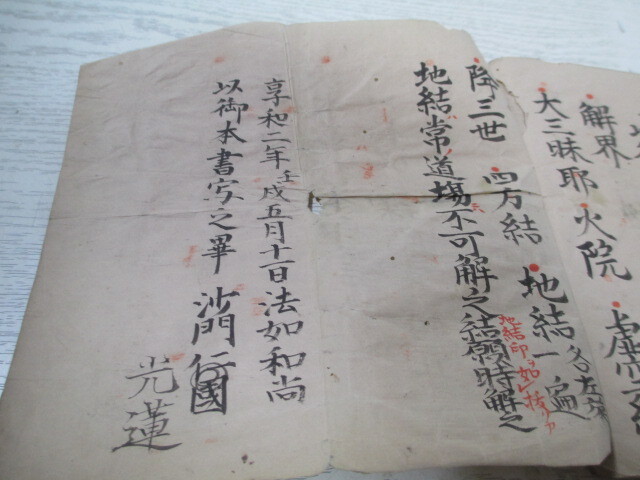 解界
大三昧耶 火院
降三世 四方結 地結一遍 各左
地結常道場不可解之結願時解之
地結印ヲ如レ抜
享和二年壬戌五月十一日法如和尚
以御本書写之畢 沙門仁國
光蓮